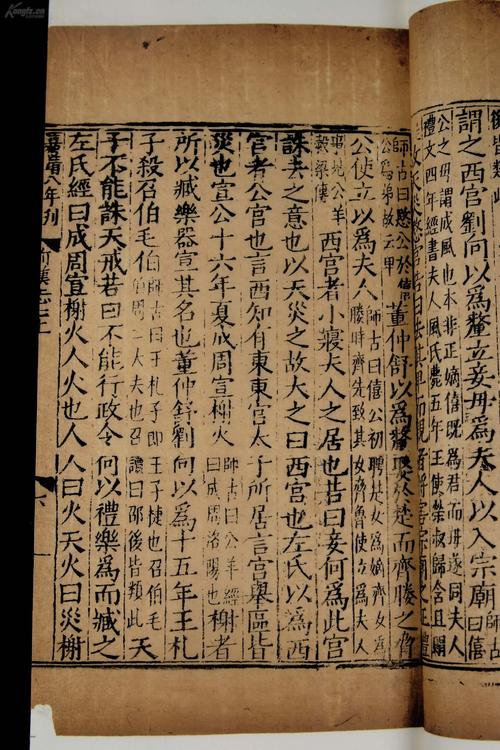 謂之西宮劉向以為釐立妾母為夫人以入宗廟師古曰僖
公之母謂成風也本非正嫡僖既為君而母遂同夫人
禮文四年經書夫人風氏薨五年王使榮叔歸含且賵
師古曰愍公於僖
公為弟故云卑
董仲舒以為釐娶於楚而齊媵之脅
公使立以為夫人
師古曰僖公初聘楚女為嫡齊女為
媵時齊先致其女脅魯使立為夫人
事見公羊
穀梁傳
西宮者小寢夫人之居也若曰妾何為此宮
誅去之意也以天災之故大之曰西宮也左氏以為西
宮者公宮也言西知有東東宮太子所居言宮舉區皆
災也宣公十六年夏成周宣榭火
師古曰公羊經
曰成周洛陽也
榭者
所以臧樂器宣其名也董仲舒劉向以為十五年王札
子殺召伯毛伯
師古曰王札子即王子捷也召伯毛伯
周二大夫也召讀曰邵後皆類此
天
子不能誅天戒若曰不能行政令何以禮樂為而臧之
左氏經曰成周宣榭火人火也人人曰火天火曰災榭
嘉靖八年刊
六
Kongfz.cn